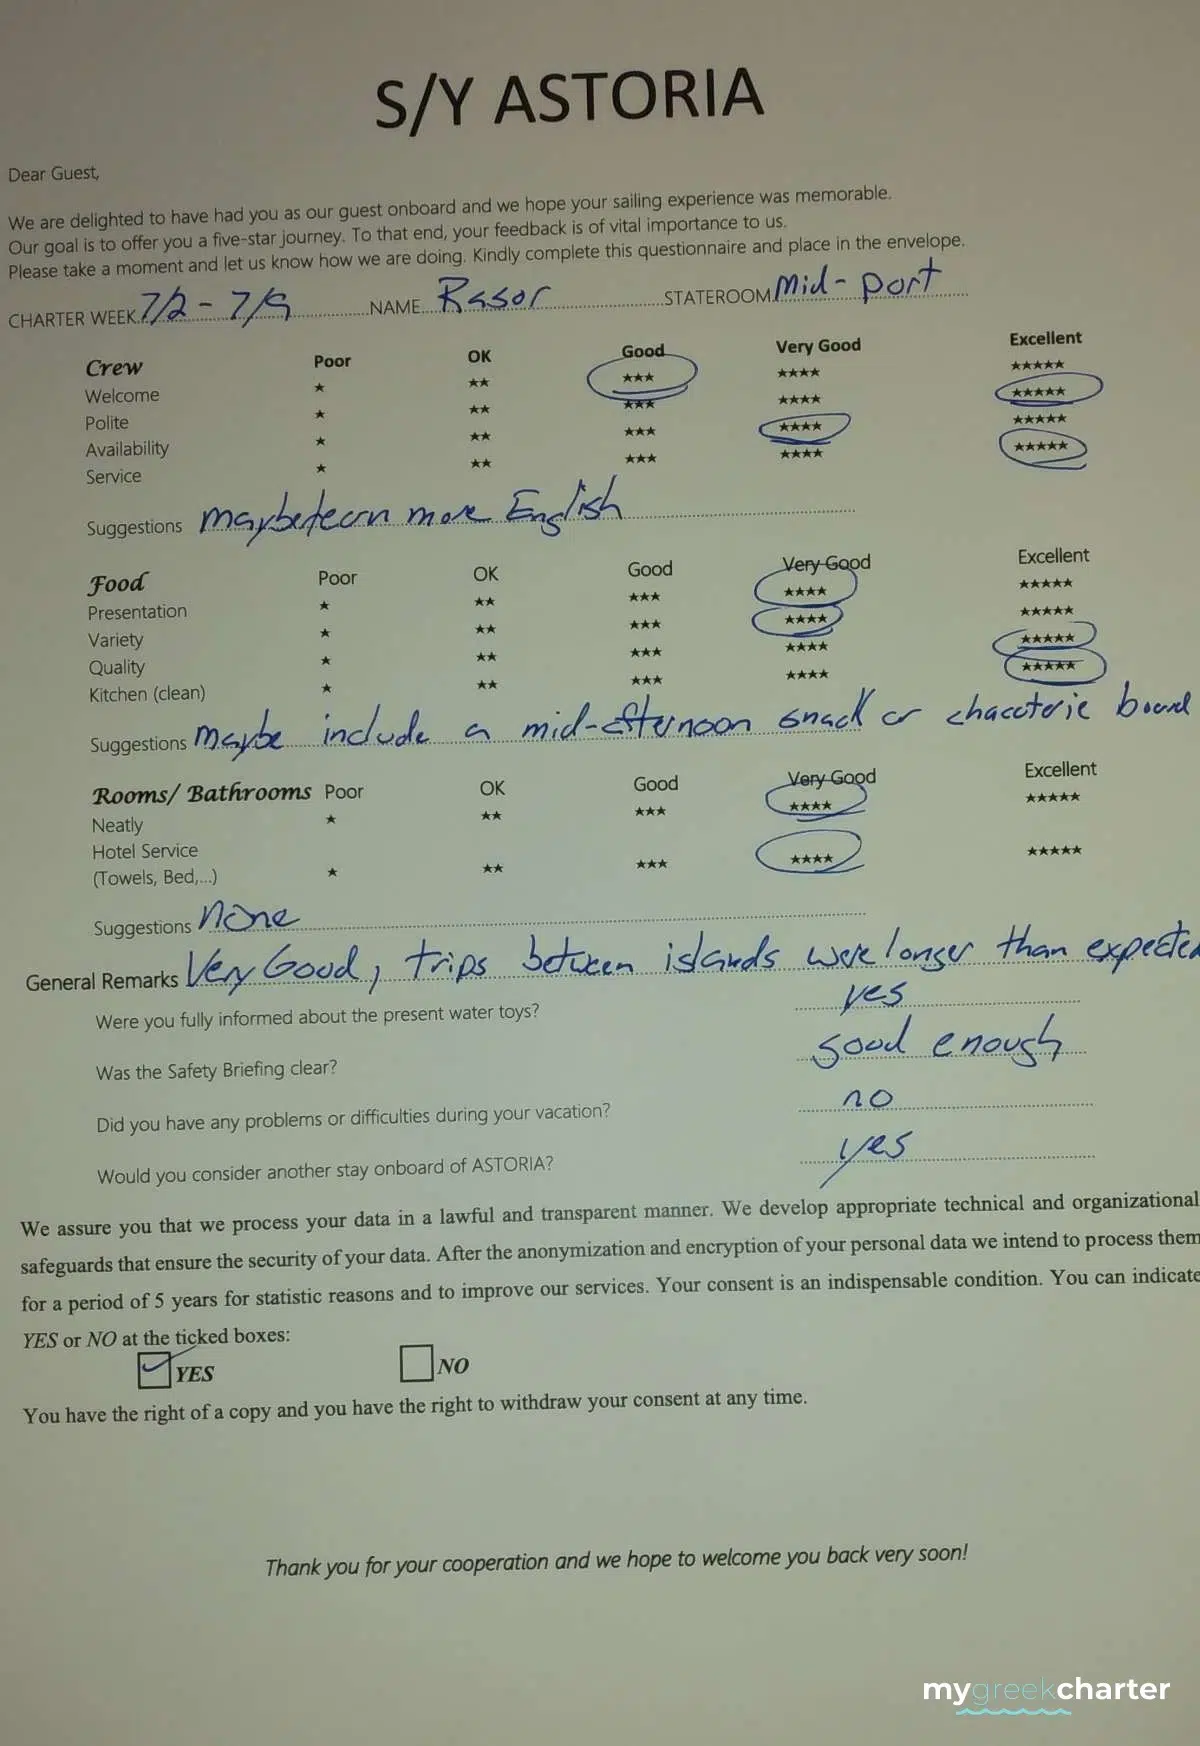 S/Y ASTORIA
Dear Guest,
We are delighted to have had you as our guest onboard and we hope your sailing experience was memorable.
Our goal is to offer you a five-star journey. To that end, your feedback is of vital importance to us.
Please take a moment and let us know how we are doing. Kindly complete this questionnaire and place in the envelope.
CHARTER WEEK 7/2 - 7/9 NAME Rasor STATEROOM Mid-port
Crew Poor OK Good Very Good Excellent
Welcome ★ ★★ ★★★ ★★★★ ★★★★★
Polite ★ ★★ ★★★ ★★★★ ★★★★★
Availability ★ ★★ ★★★ ★★★★ ★★★★★
Service ★ ★★ ★★★ ★★★★ ★★★★★
Suggestions maybe learn more English
Food Poor OK Good Very Good Excellent
Presentation ★ ★★ ★★★ ★★★★ ★★★★★
Variety ★ ★★ ★★★ ★★★★ ★★★★★
Quality ★ ★★ ★★★ ★★★★ ★★★★★
Kitchen (clean) ★ ★★ ★★★ ★★★★ ★★★★★
Suggestions maybe include a mid-afternoon snack or chacoterie board
Rooms/ Bathrooms Poor OK Good Very Good Excellent
Neatly ★ ★★ ★★★ ★★★★ ★★★★★
Hotel Service
(Towels, Bed,...) ★ ★★ ★★★ ★★★★ ★★★★★
Suggestions none
General Remarks Very Good, trips between islands were longer than expected
Were you fully informed about the present water toys? yes
Was the Safety Briefing clear? good enough
Did you have any problems or difficulties during your vacation? no
Would you consider another stay onboard of ASTORIA? yes
We assure you that we process your data in a lawful and transparent manner. We develop appropriate technical and organizational
safeguards that ensure the security of your data. After the anonymization and encryption of your personal data we intend to process them
for a period of 5 years for statistic reasons and to improve our services. Your consent is an indispensable condition. You can indicate
YES or NO at the ticked boxes:
YES NO
You have the right of a copy and you have the right to withdraw your consent at any time.
Thank you for your cooperation and we hope to welcome you back very soon!
mygreekcharter